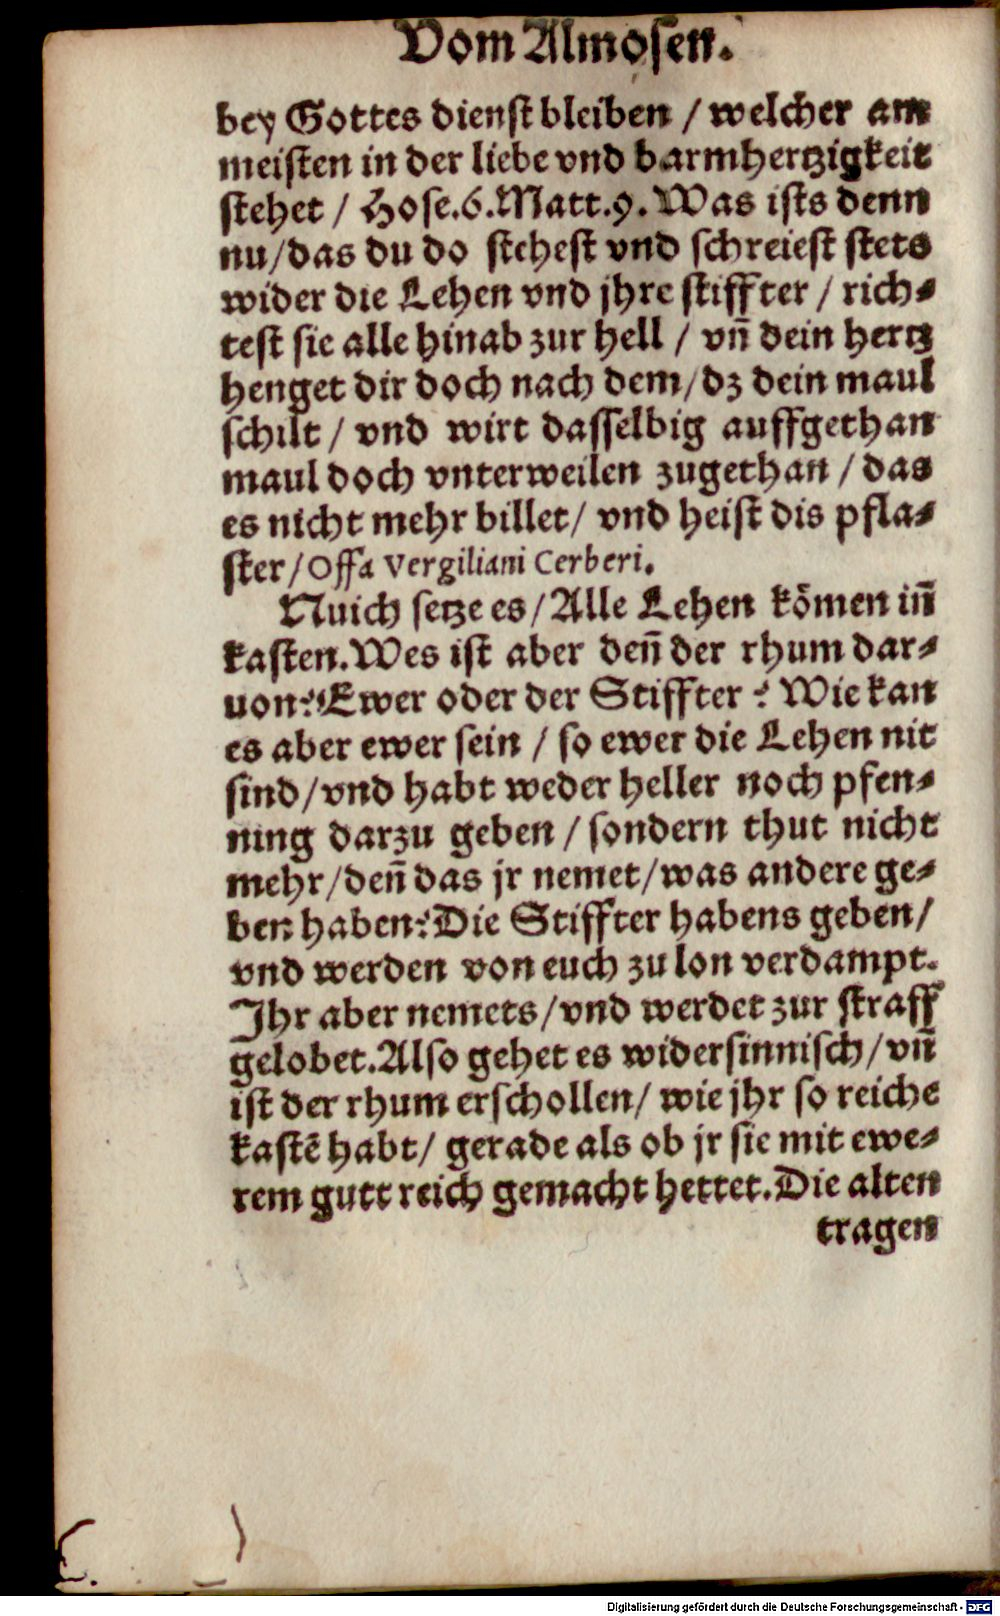 Vom Almosen.
bey Gottes dienst bleiben / welcher am
meisten in der liebe vnd barmhertzigkeit
stehet / Hose.6.Matt.9. Was ists denn
nu/das du do stehest vnd schreiest stets
wider die Lehen vnd jhre stiffter / rich⸗
test sie alle hinab zur hell / vn̄ dein hertz
henget dir doch nach dem/dz dein maul
schilt / vnd wirt dasselbig auffgethan
maul doch vnterweilen zugethan / das
es nicht mehr billet/ vnd heist dis pfla⸗
ster/Offa Vergiliani Cerberi.
Nuich setze es/Alle Lehen kōmen in̄
kasten.Wes ist aber den̄ der rhum dar⸗
uon? Ewer oder der Stiffter? Wie kan
es aber ewer sein / so ewer die Lehen nit
sind/vnd habt weder heller noch pfen⸗
ning darzu geben / sondern thut nicht
mehr/den̄ das jr nemet/was andere ge⸗
ben haben? Die Stiffter habens geben/
vnd werden von euch zu lon verdampt.
Ihr aber nemets/vnd werdet zur straff
gelobet.Also gehet es widersinnisch/vn̄
ist der rhum erschollen/ wie jhr so reiche
kastē habt/ gerade als ob jr sie mit ewe⸗
rem gutt reich gemacht hettet.Die alten
tragen
Digitalisierung gefördert durch die Deutsche Forschungsgemeinschaft - DFG